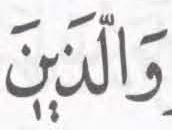 وَالَّذَيِنَ